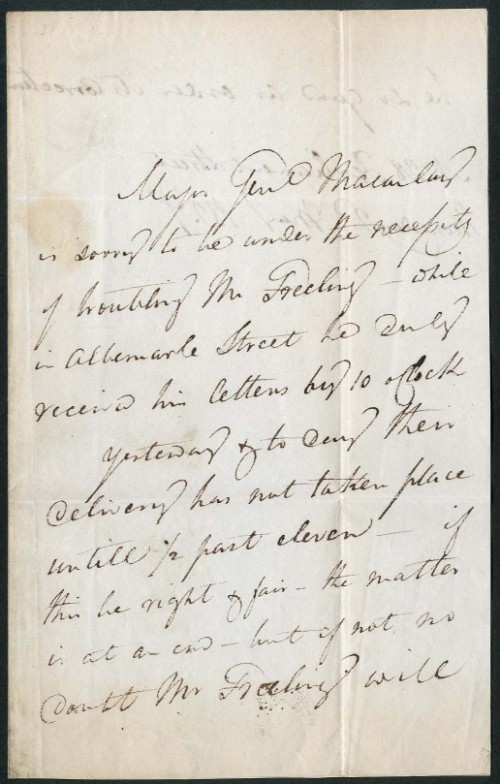 Major Genl Macaulay
is sorry to be under the necessity
of troubling Mr Freeling – while
in Albemarle Street he duly
received his letters by 10 o'Clock
yesterday & to day their
delivery has not taken place
untill ½ past eleven – if
this be right & fair – the matter
is at an end – but if not no
doubt Mr Freeling will